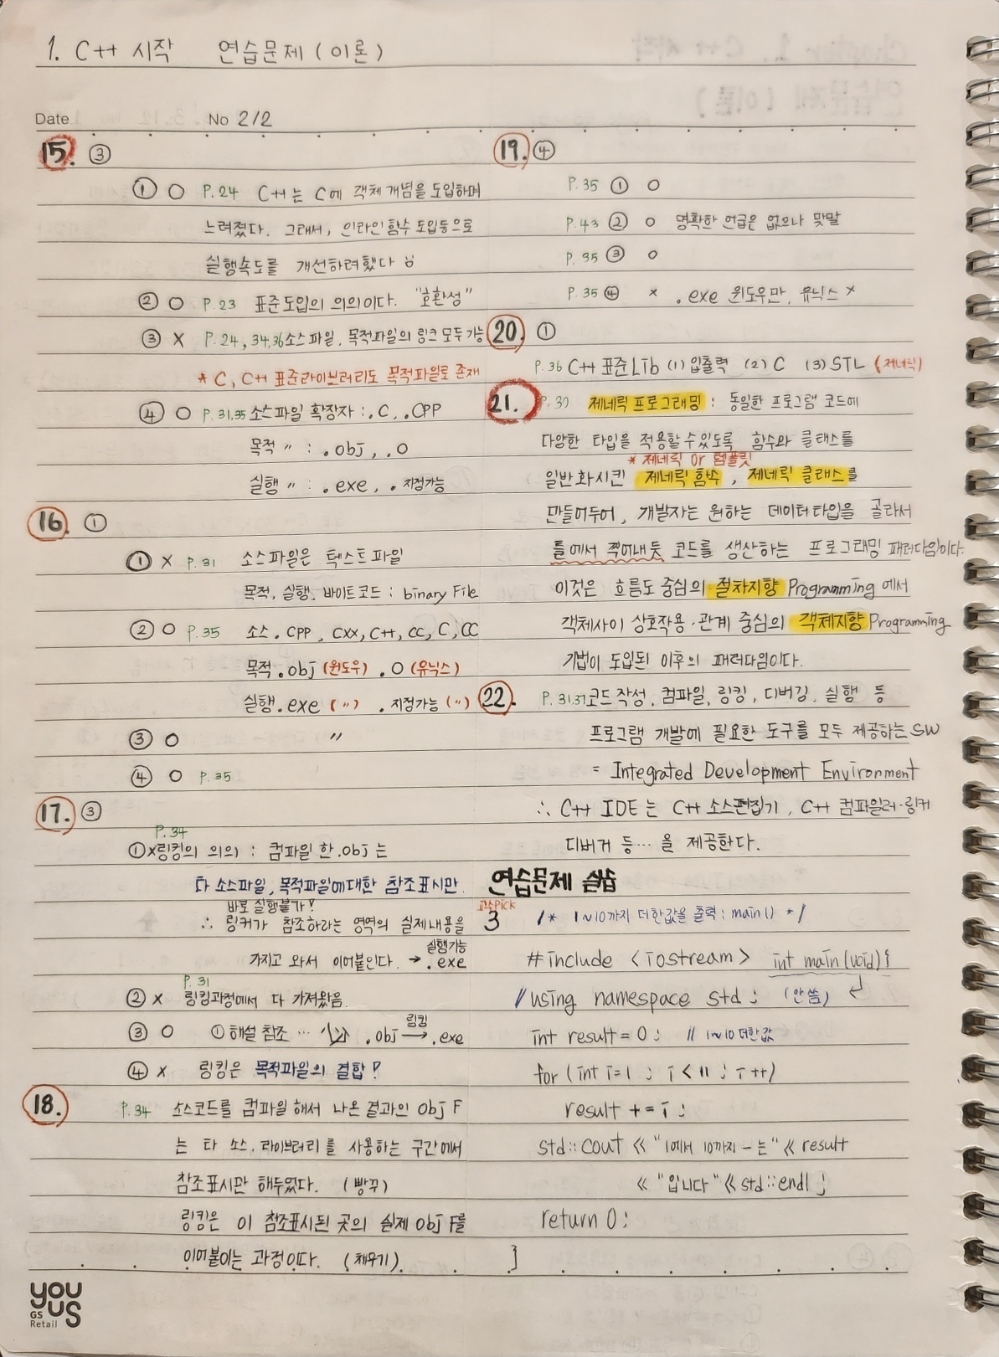 1. C++ 시작 연습문제 (이론)
Date No 2/2
15. ③
① O P.24 C++는 C에 객체 개념을 도입하며
느려졌다. 그래서, 인라인 함수 도입 등으로
실행속도를 개선하려했다
② O P.23 표준 도입의 의의이다. "호환성"
③ X P.24, 34, 36 소스파일, 목적파일의 링크 모두 가능
* C, C++ 표준라이브러리도 목적파일로 존재
④ O P.31,35 소스파일 확장자 : .C, .CPP
목적 〃 : .obj, .O
실행 〃 : .exe, . 지정가능
16. ①
① X P.31 소스파일은 텍스트 파일
목적, 실행, 바이트코드 : binary File
② O P.35 소스 .CPP, CXX, C++, CC, C, CC
목적 .obj (윈도우) .O (유닉스)
실행 .exe (〃) . 지정가능 (〃)
③ O 〃
④ O P.35
17. ③
P.34
① X 링킹의 의의 : 컴파일 한 .obj 는
타 소스파일, 목적파일에 대한 참조표시만.
바로 실행불가!
∴ 링커가 참조하라는 영역의 실제내용을
실행가능
가지고 와서 이어붙인다. → .exe
P.31
② X 링킹과정에서 다 가져왔음.
링킹
③ O ① 해설 참조 … .obj → .exe
④ X 링킹은 목적파일의 결합!
18. P.34 소스코드를 컴파일 해서 나온 결과인 obj F
는 타 소스, 라이브러리를 사용하는 구간에서
참조표시만 해두었다. (빵꾸)
링킹은 이 참조표시된 곳의 실제 obj F를
이어붙이는 과정이다. (채우기)
19. ④
P.35 ① O
P.43 ② O 명확한 언급은 없으나 맞말
P.35 ③ O
P.35 ④ X .exe 윈도우만, 유닉스 X
20. ①
P.36 C++ 표준 Lib (1) 입출력 (2) C (3) STL (제네릭)
21. P.37 제네릭 프로그래밍 : 동일한 프로그램 코드에
다양한 타입을 적용할 수 있도록 함수와 클래스를
* 제네릭 or 템플릿
일반화시킨 제네릭 함수, 제네릭 클래스를
만들어두어, 개발자는 원하는 데이터 타입을 골라서
틀에서 찍어내듯 코드를 생산하는 프로그래밍 패러다임이다.
이것은 흐름도 중심의 절차지향 Programming 에서
객체사이 상호작용·관계 중심의 객체지향 Programming
기법이 도입된 이후의 패러다임이다.
22. P.31,37 코드 작성, 컴파일, 링킹, 디버깅, 실행 등
프로그램 개발에 필요한 도구를 모두 제공하는 SW
= Integrated Development Environment
∴ C++ IDE 는 C++ 소스편집기, C++ 컴파일러·링커
디버거 등… 을 제공한다.
연습문제 실습
3 /* 1~10까지 더한값을 출력 : main() */
#include <iostream> int main(void){
//using namespace std; (안씀)
int result = 0; // 1~10 더한값
for (int i=1 ; i < 11 ; i++)
result += i;
std::cout << "1에서 10까지 - 는" << result
<< "입니다" << std::endl;
return 0;
}
you us
GS Retail